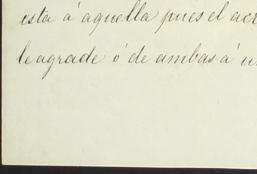 esta á aquella pues el acr
le agrade ó de ambas á u